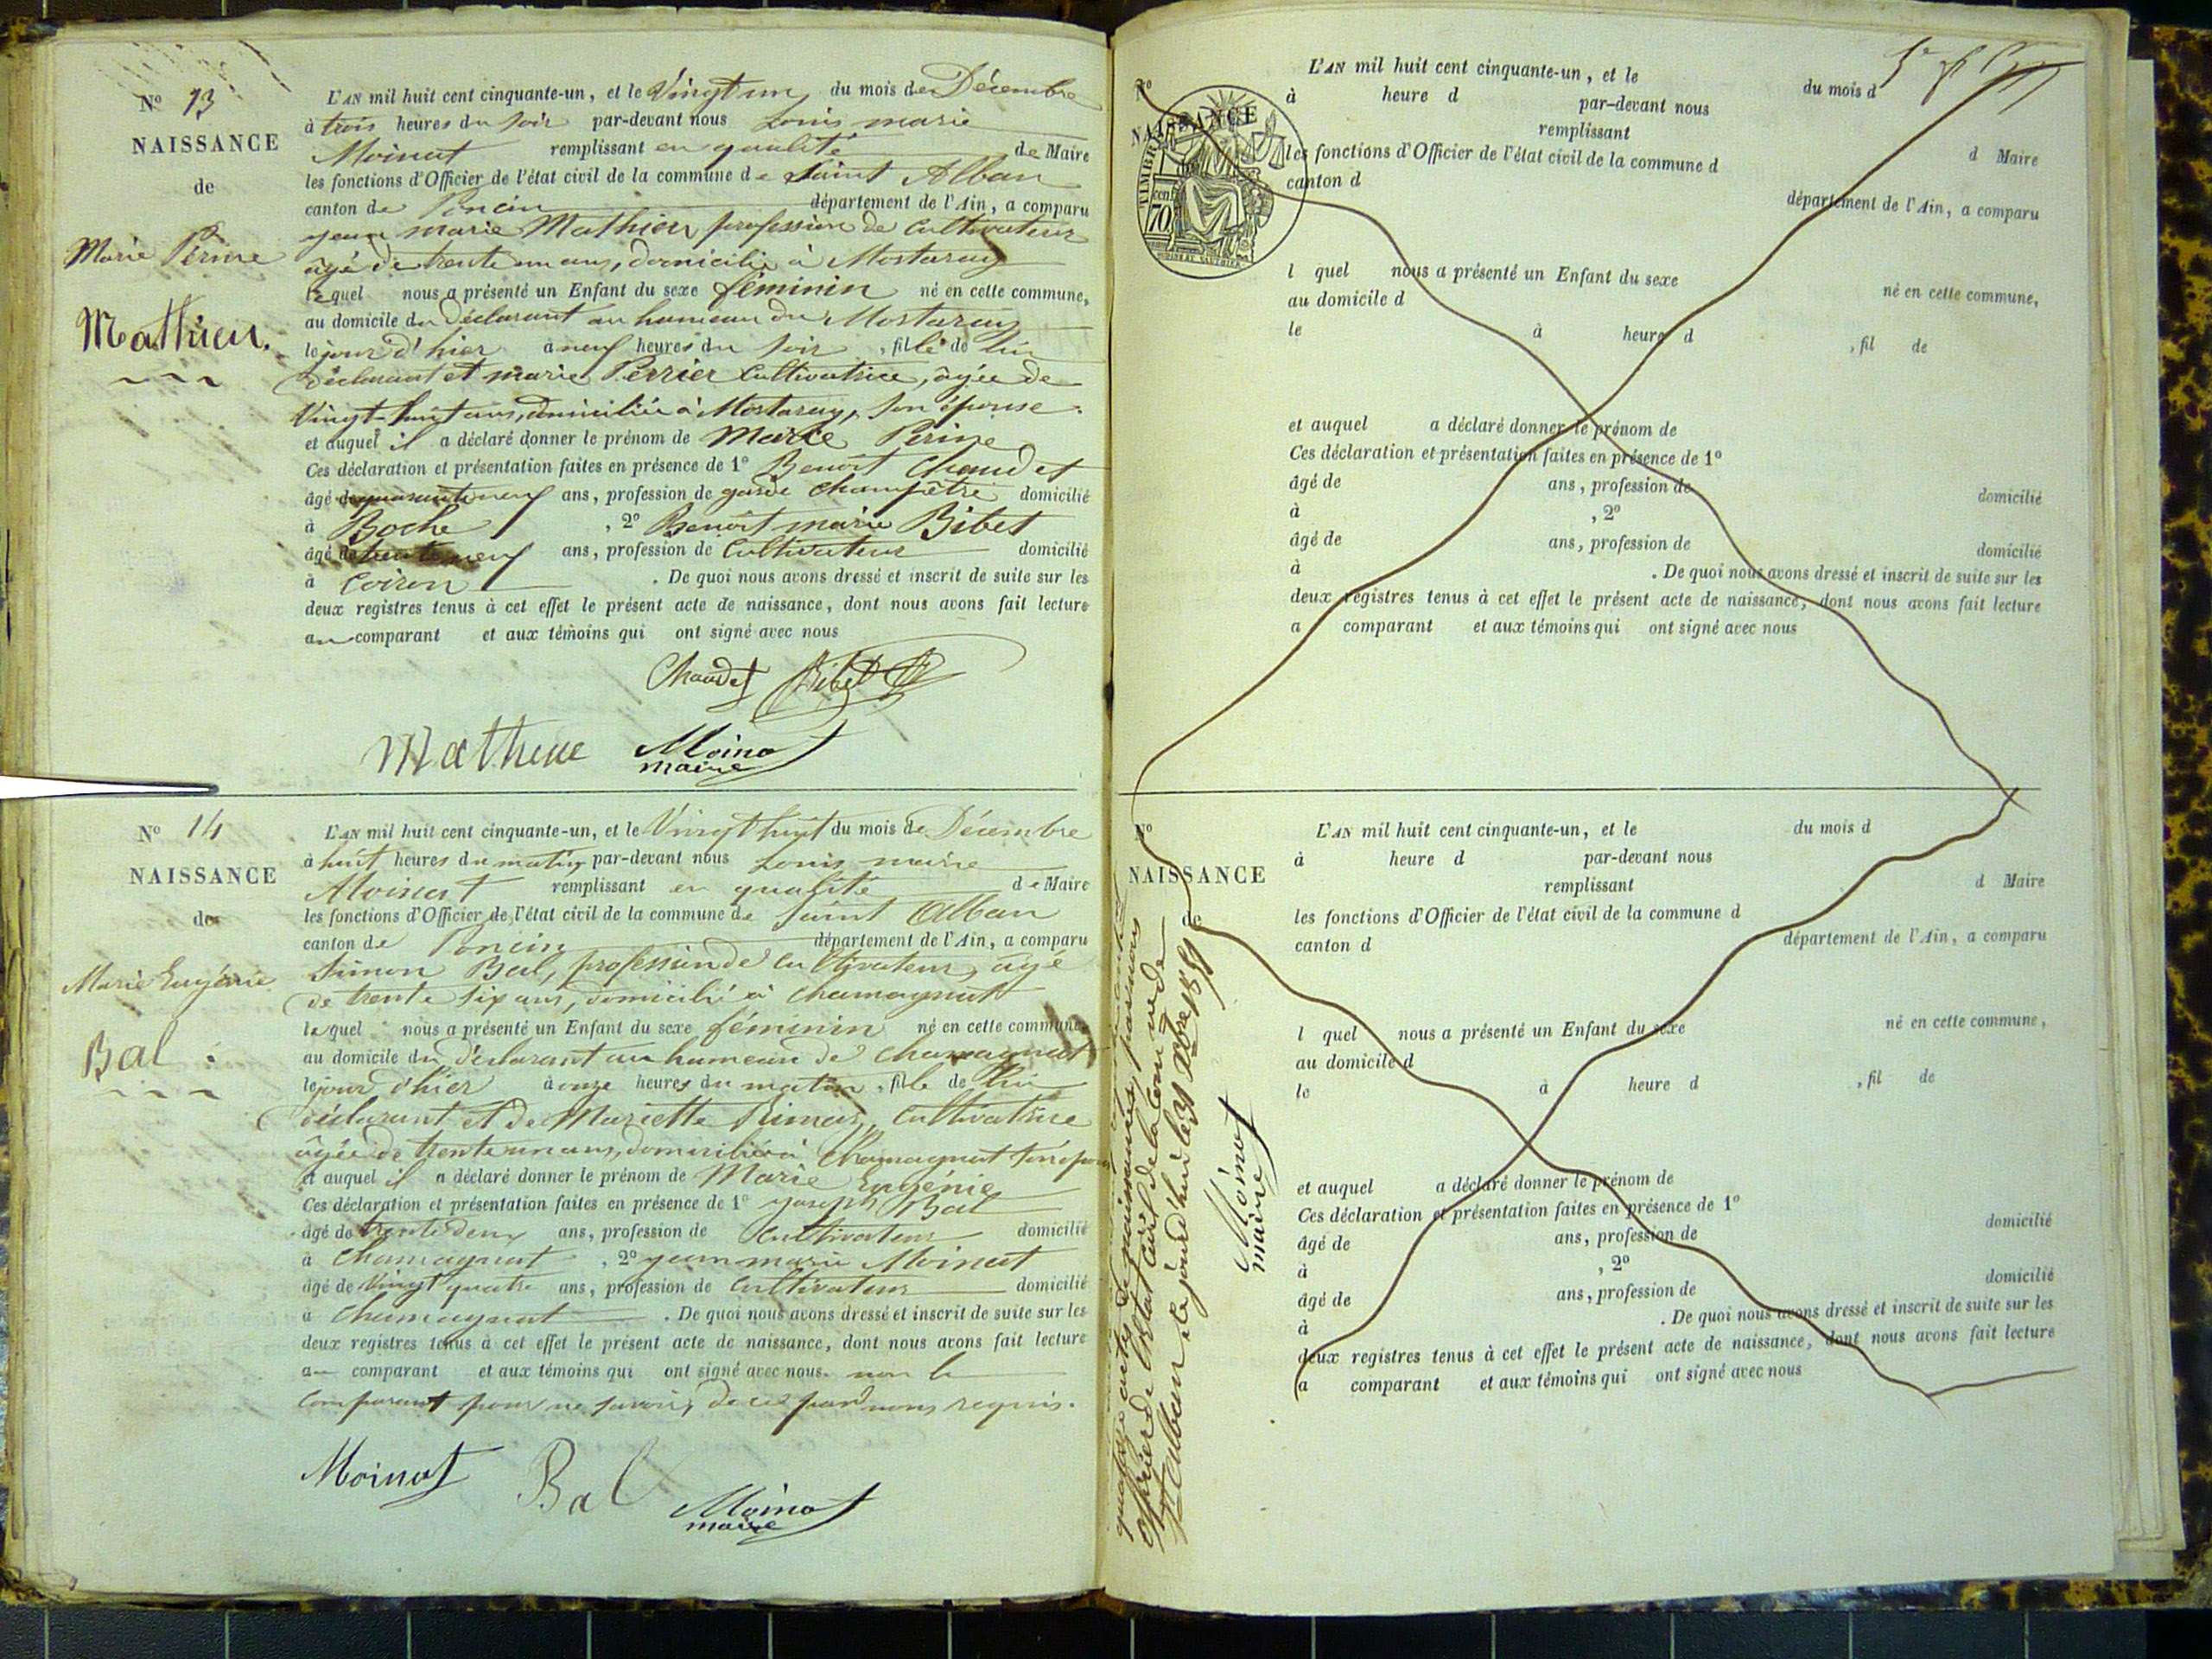 N° 13
NAISSANCE
de
Marie Perine
Mathieu.
L'AN mil huit cent cinquante-un, et le Vingt un du mois de Décembre
à trois heures du soir par-devant nous Louis marie
Moinat remplissant en qualité de Maire
les fonctions d'Officier de l'état civil de la commune de Saint Alban
canton de Poncin département de l'Ain, a comparu
jean marie Mathieu profession de Cultivateur
âgé de trente un ans, domicilié à Mostaray
lequel nous a présenté un Enfant du sexe féminin né en cette commune,
au domicile du déclarant au hameau du Mostaray
le jour d'hier à neuf heures du soir, fille de lui
déclarant et marie Perrier Cultivatrice, âgée de
Vingt-huit ans, domiciliée à Mostaray, son épouse.
et auquel il a déclaré donner le prénom de Marie Perine
Ces déclaration et présentation faites en présence de 1° Benoit Chaudet
âgé de quarante neuf ans, profession de garde champêtre domicilié
à Boche, 2° Benoit marie Bibet
âgé de trente neuf ans, profession de Cultivateur domicilié
à Coiron. De quoi nous avons dressé et inscrit de suite sur les
deux registres tenus à cet effet le présent acte de naissance, dont nous avons fait lecture
au comparant et aux témoins qui ont signé avec nous
Chaudet Bibet
Matheue Moinat
maire
N° 14
NAISSANCE
de
Marie Eugénie
Bal.
L'AN mil huit cent cinquante-un, et le Vingt huit du mois de Décembre
à huit heures du matin, par-devant nous Louis marie
Moinat remplissant en qualité de Maire
les fonctions d'Officier de l'état civil de la commune de Saint Alban
canton de Poncin département de l'Ain, a comparu
Simon Bal, profession de Cultivateur, âgé
de trente six ans, domicilié à Chamagnat
lequel nous a présenté un Enfant du sexe féminin né en cette commune,
au domicile du déclarant au hameau de Chamagnat
le jour d'hier à onze heures du matin, fille de lui
déclarant et de Mariette, Cultivatrice
âgée de trente un ans, domiciliée à Chamagnat
et auquel il a déclaré donner le prénom de Marie Eugénie
Ces déclaration et présentation faites en présence de 1° joseph Bal
âgé de trente deux ans, profession de Cultivateur domicilié
à Chamagnat, 2° jean marie Moinat
âgé de Vingt quatre ans, profession de Cultivateur domicilié
à Chamagnat. De quoi nous avons dressé et inscrit de suite sur les
deux registres tenus à cet effet le présent acte de naissance, dont nous avons fait lecture
au comparant et aux témoins qui ont signé avec nous. non le
Comparant pour ne savoir, de ce par nous requis.
Moinat Bal Moinat
maire
N°
NAISSANCE
TIMBRE
cent
70
L'AN mil huit cent cinquante-un, et le du mois d
à heure d par-devant nous
remplissant d Maire
les fonctions d'Officier de l'état civil de la commune d
canton d département de l'Ain, a comparu
l quel nous a présenté un Enfant du sexe né en cette commune,
au domicile d
le à heure d, fil de
et auquel a déclaré donner le prénom de
Ces déclaration et présentation faites en présence de 1°
âgé de ans, profession de domicilié
à, 2°
âgé de ans, profession de domicilié
à. De quoi nous avons dressé et inscrit de suite sur les
deux registres tenus à cet effet le présent acte de naissance, dont nous avons fait lecture
a comparant et aux témoins qui ont signé avec nous
N°
NAISSANCE
de
L'AN mil huit cent cinquante-un, et le du mois d
à heure d par-devant nous
remplissant d Maire
les fonctions d'Officier de l'état civil de la commune d
canton d département de l'Ain, a comparu
l quel nous a présenté un Enfant du sexe né en cette commune,
au domicile d
le à heure d, fil de
et auquel a déclaré donner le prénom de
Ces déclaration et présentation faites en présence de 1°
âgé de ans, profession de domicilié
à, 2°
âgé de ans, profession de domicilié
à. De quoi nous avons dressé et inscrit de suite sur les
deux registres tenus à cet effet le présent acte de naissance, dont nous avons fait lecture
a comparant et aux témoins qui ont signé avec nous
quatorze actes de naissances, par nous
officier de l'état civil de la commune de
St alban, le jourd'hui le 31 Xbre 1851
Moinat
maire